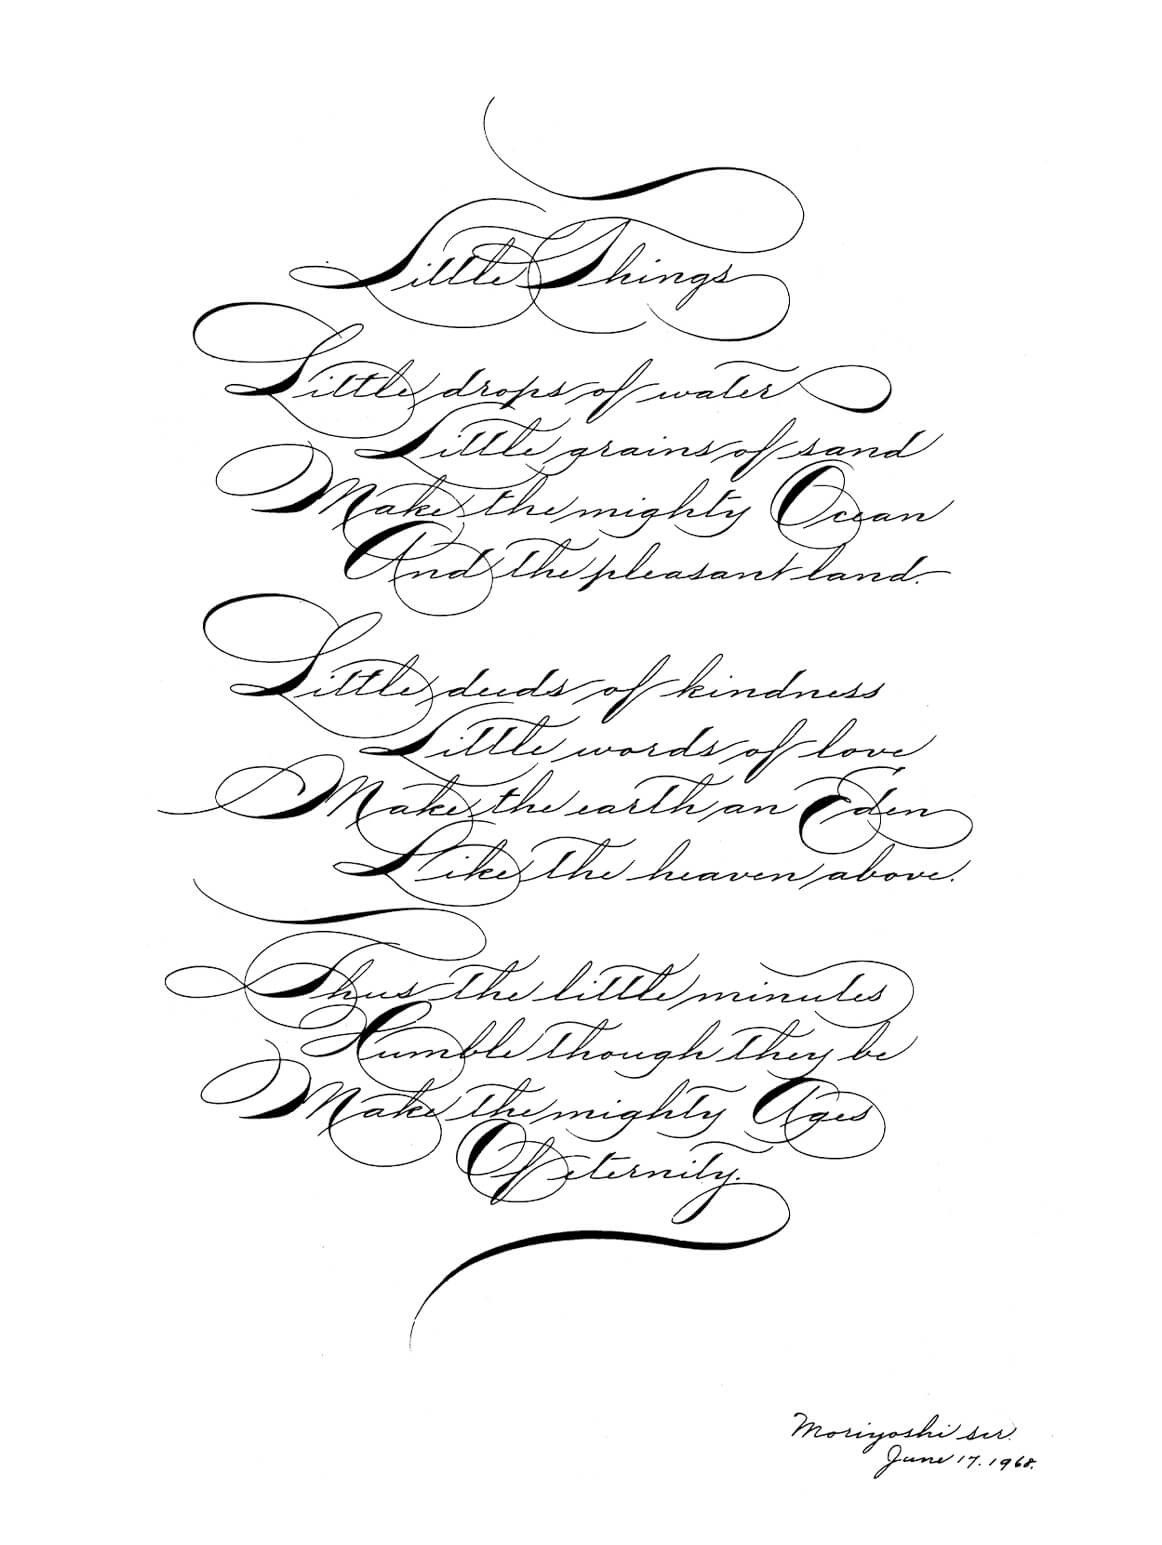 Little Things
Little drops of water
Little grains of sand
Make the mighty Ocean
And the pleasant land.
Little deeds of kindness
Little words of love
Make the earth an Eden
Like the heaven above.
Thus the little minutes
Humble though they be
Make the mighty Ages
Of eternity.
Moriyoshi scr.
June 17. 1968.